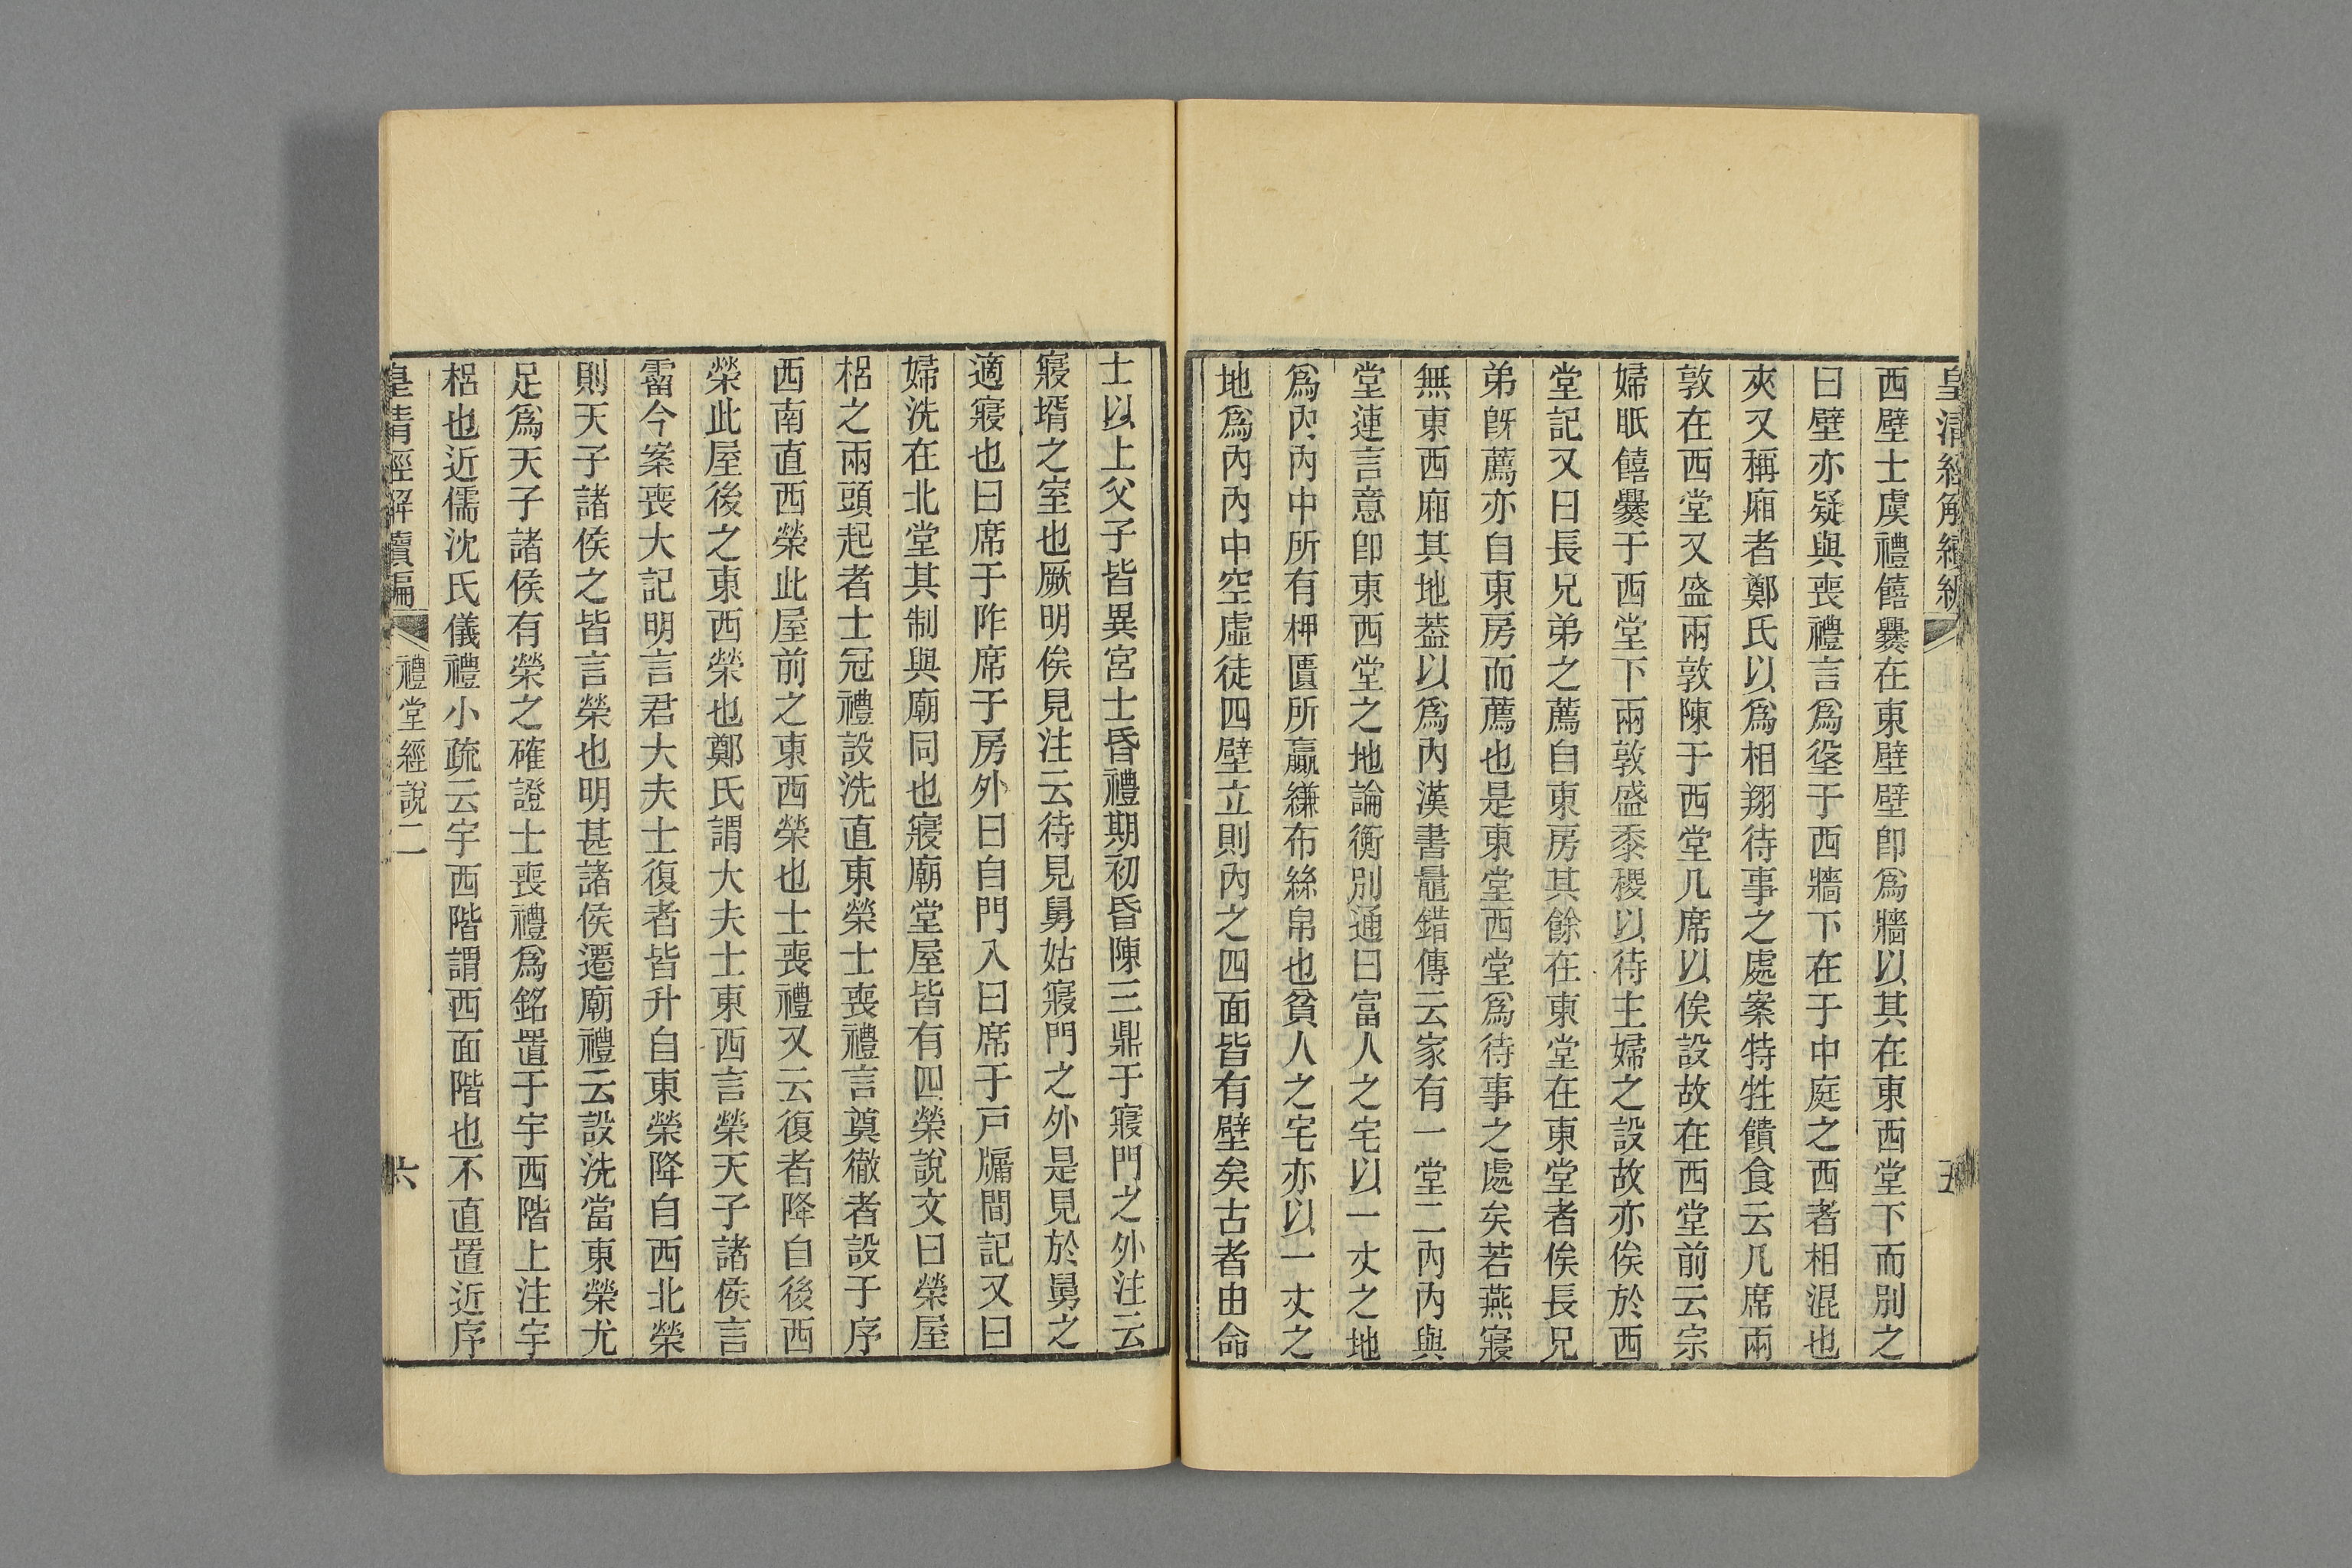 皇清經解續編
五
西壁士虞禮饎爨在東壁壁卽爲牆以其在東西堂下而別之
曰壁亦疑與喪禮言爲垼于西牆下在于中庭之西者相混也
夾又稱廂者鄭氏以爲相翔待事之處案特牲饋食云几席兩
敦在西堂又盛兩敦陳于西堂几席以俟設故在西堂前云宗
婦眂饎爨于西堂下兩敦盛黍稷以待主婦之設故亦俟於西
堂記又曰長兄弟之薦自東房其餘在東堂在東堂者俟長兄
弟旣薦亦自東房而薦也是東堂西堂爲待事之處矣若燕寢
無東西廂其地葢以爲內漢書鼂錯傳云家有一堂二內內與
堂連言意卽東西堂之地論衡別通曰富人之宅以一丈之地
爲內內中所有柙匱所贏縑布絲帛也貧人之宅亦以一丈之
地爲內內中空虛徒四壁立則內之四面皆有壁矣古者由命
士以上父子皆異宮士昏禮期初昏陳三鼎于寢門之外注云
寢壻之室也厥明俟見注云待見舅姑寢門之外是見於舅之
適寢也曰席于阼席于房外曰自門入曰席于戸牖間記又曰
婦洗在北堂其制與廟同也寢廟堂屋皆有四榮說文曰榮屋
梠之兩頭起者士冠禮設洗直東榮士喪禮言奠徹者設于序
西南直西榮此屋前之東西榮也士喪禮又云復者降自後西
榮此屋後之東西榮也鄭氏謂大夫士東西言榮天子諸侯言
霤今案喪大記明言君大夫士復者皆升自東榮降自西北榮
則天子諸侯之皆言榮也明甚諸侯遷廟禮云設洗當東榮尤
足爲天子諸侯有榮之確證士喪禮爲銘置于宇西階上注宇
梠也近儒沈氏儀禮小疏云宇西階謂西面階也不直置近序
皇淸經解續編
禮堂經說二
六